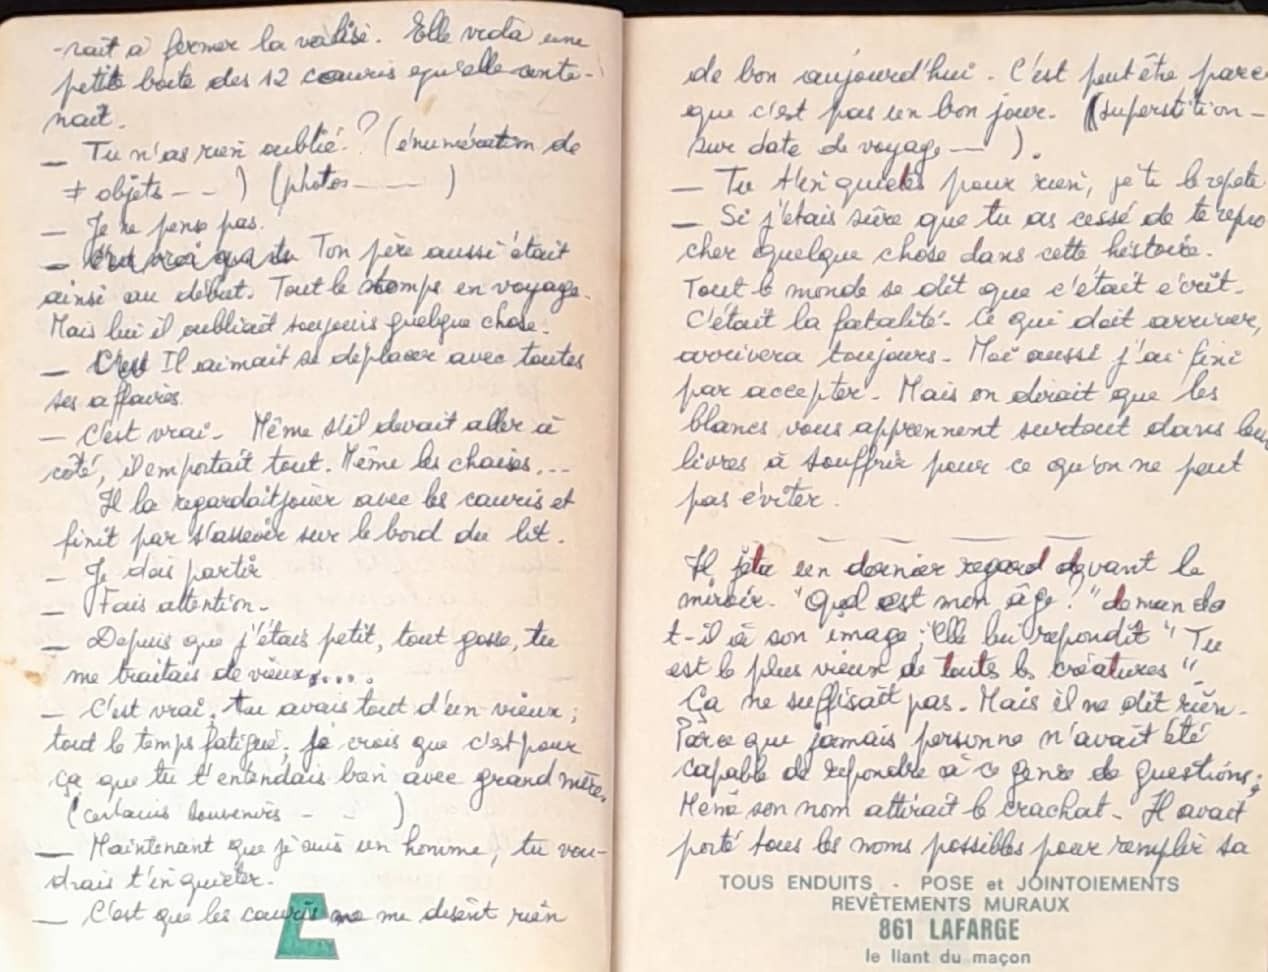 -rait à fermer la valise. Elle vida une
petite boite des 12 cauris qu'elle conte-
nait.
— Tu n'as rien oublié ? (énumération de
≠ objets - - ) (photos — )
— Je ne pense pas.
— Ton père aussi était
ainsi au début. Tout le temps en voyage.
Mais lui il oubliait toujours quelque chose.
— C'est Il aimait se déplacer avec toutes
ses affaires.
— C'est vrai. Même s'il devait aller à
côté, il emportait tout. Même les chaises...
Il la regardait jouer avec les cauris et
finit par s'asseoir sur le bord du lit.
— Je dois partir
— Fais attention.
— Depuis que j'étais petit, tout gosse, tu
me traitais de vieux....
— C'est vrai. tu avais tout d'un vieux ;
tout le temps fatigué. Je crois que c'est pour
ça que tu t'entendais bien avec grand mère.
(certains souvenirs - - )
— Maintenant que je suis un homme, tu vou-
drais t'inquiéter.
— C'est que les cauris ne me disent rien
de bon aujourd'hui. C'est peut être parce
que c'est pas un bon jour. (superstition -
sur date de voyage — ).
— Tu t'inquiètes pour rien, je te le répète
— Si j'étais sûre que tu as cessé de te repro
cher quelque chose dans cette histoire.
Tout le monde se dit que c'était écrit.
C'était la fatalité. Ce qui doit arriver,
arrivera toujours. Moi aussi j'ai fini
par accepter. Mais on dirait que les
blancs vous apprennent surtout dans leu
livres à souffrir pour ce qu'on ne peut
pas éviter.
Il jeta un dernier regard devant le
miroir. "Quel est mon âge ?" demanda
t-il à son image ; Elle lui répondit "Tu
est le plus vieux de toutes les créatures".
Ça ne suffisait pas. Mais il ne dit rien.
Parce que jamais personne n'avait été
capable de répondre à ce genre de questions.
Même son nom attirait le crachat. Il avait
porté tous les noms possibles pour remplir sa
TOUS ENDUITS - POSE et JOINTOIEMENTS
REVÊTEMENTS MURAUX
861 LAFARGE
le liant du maçon